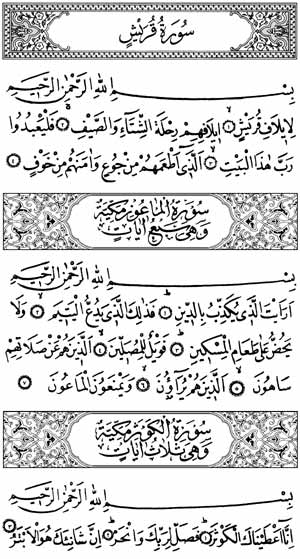 سُورَةُ قُرَيْشٍ
بِسْمِ اللهِ الرَّحْمٰنِ الرَّحِيمِ
لِاِيلَافِ قُرَيْشٍ ١ اِيلَافِهِمْ رِحْلَةَ الشِّتَٓاءِ وَالصَّيْفِ ٢ فَلْيَعْبُدُوا
رَبَّ هٰذَا الْبَيْتِ ٣ اَلَّذِٓى اَطْعَمَهُمْ مِنْ جُوعٍ وَاٰمَنَهُمْ مِنْ خَوْفٍ ٤
سُورَةُ الْمَاعُونِ مَكِّيَّةٌ
وَهِىَ سَبْعُ اٰيَاتٍ
بِسْمِ اللهِ الرَّحْمٰنِ الرَّحِيمِ
اَرَاَيْتَ الَّذِى يُكَذِّبُ بِالدِّينِ ١ فَذٰلِكَ الَّذِى يَدُعُّ الْيَتِيمَ ٢ وَلَا
يَحُضُّ عَلٰى طَعَامِ الْمِسْكِينِ ٣ فَوَيْلٌ لِلْمُصَلِّينَ ٤ اَلَّذِينَ هُمْ عَنْ صَلَاتِهِمْ
سَاهُونَ ٥ اَلَّذِينَ هُمْ يُرَٓاؤُنَ ٦ وَيَمْنَعُونَ الْمَاعُونَ ٧
سُورَةُ الْكَوْثَرِ مَكِّيَّةٌ
وَهِىَ ثَلَاثُ اٰيَاتٍ
بِسْمِ اللهِ الرَّحْمٰنِ الرَّحِيمِ
اِنَّٓا اَعْطَيْنَاكَ الْكَوْثَرَ ١ فَصَلِّ لِرَبِّكَ وَانْحَرْ ٢ اِنَّ شَانِئَكَ هُوَ الْاَبْتَرُ ٣